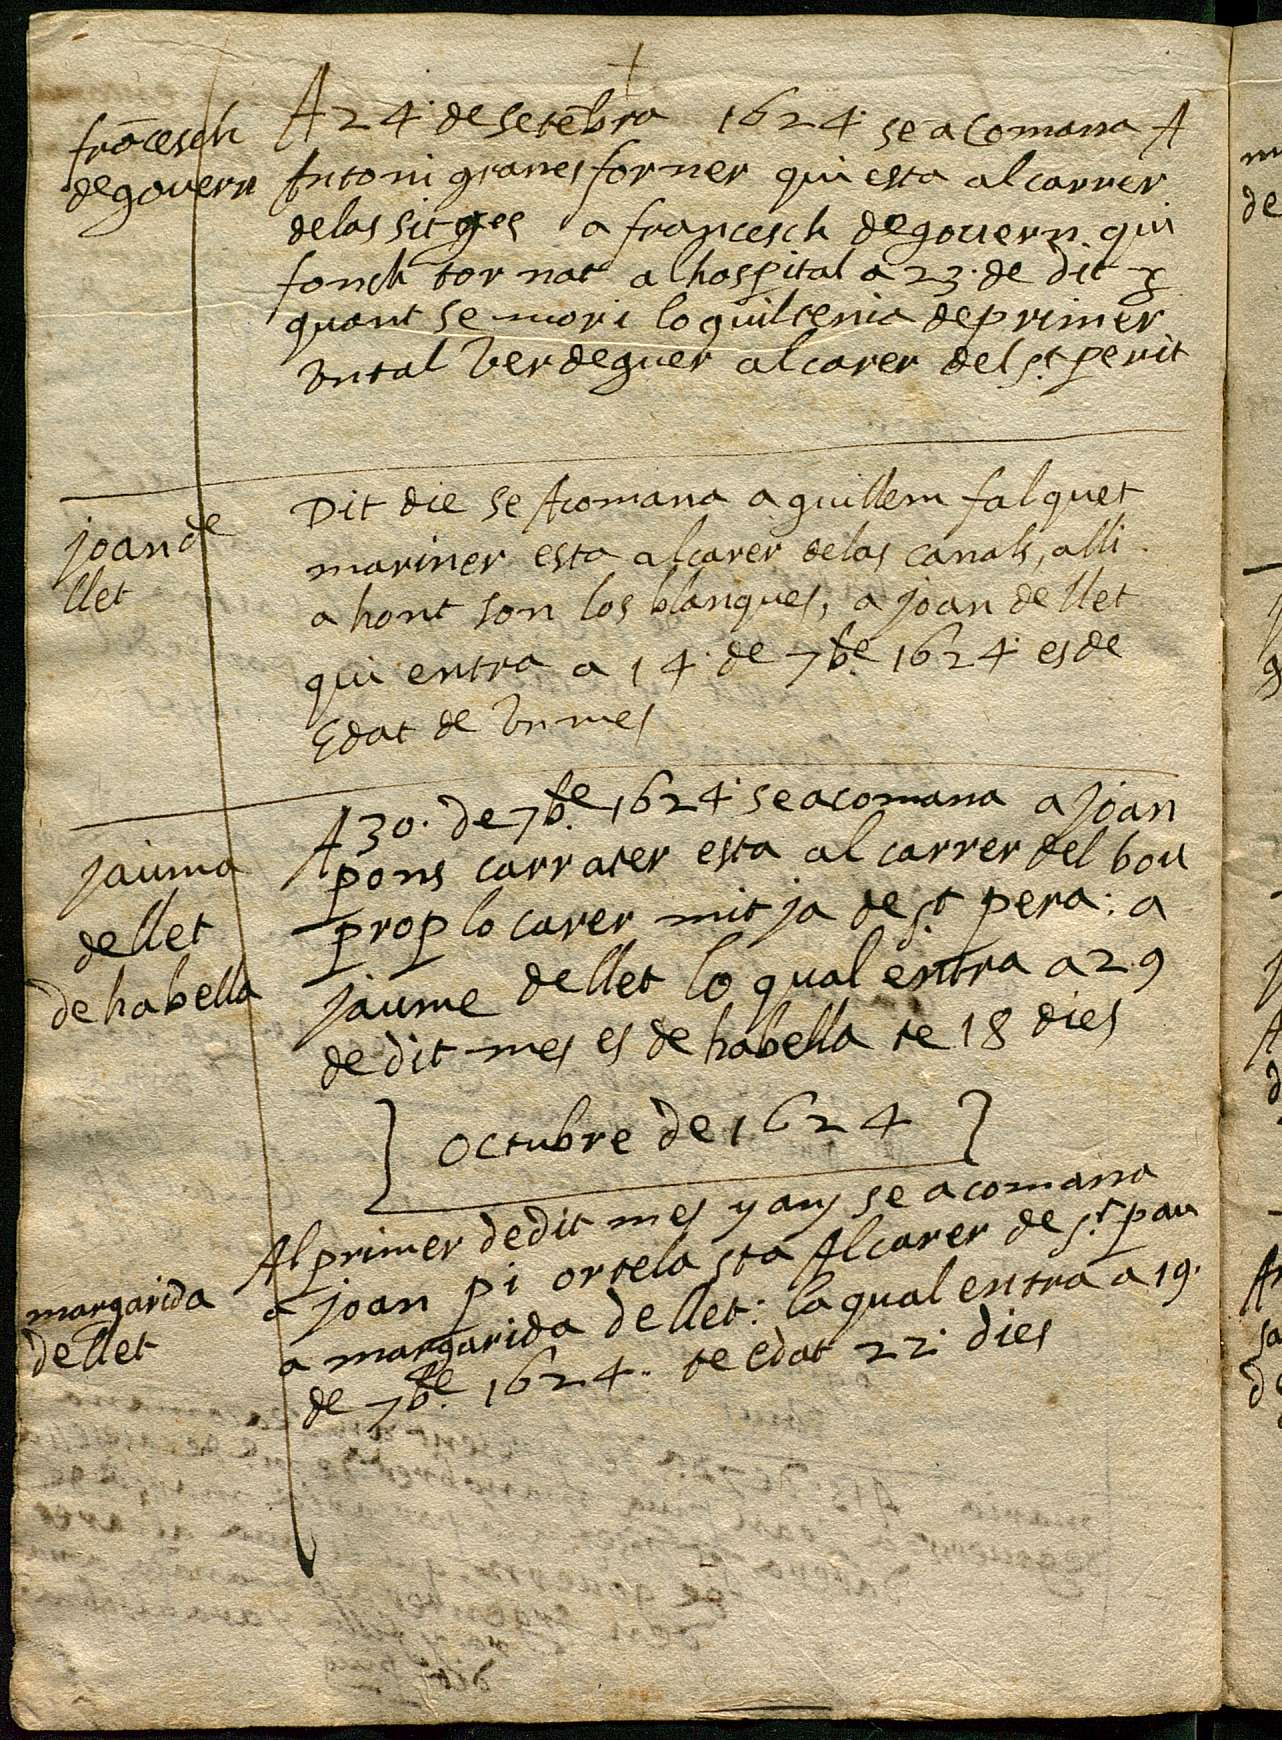 frācesch
de govern
A 24 de setēbra 1624 se a Comana A
Antoni granes forner qui esta al carrer
de las sitges a francesch de govern qui
fonch tornat a lhospital a 23 de dit
quant se mori lo quil tenia de primer
un tal verdeguer al carer del st perit
joan de
llet
Dit die se Acomana a guillem falguet
mariner esta al carer de las canals, alli
a hont son los blanques, a joan de llet
qui entra a 14 de 7bre 1624 es de
Edat de un mes
jauma
de llet
de habella
A 30 de 7bre 1624 se acomana a joan
pons carrater esta al carrer del bou
prop lo carer mitja de st pera: a
jaume de llet lo qual entra a 29
de dit mes es de habella te 18 dies
octubre de 1624
margarida
de llet
Al primer de dit mes y any se acomana
a joan pi ortela sta Al carer de st pau
a margarida de llet: la qual entra a 19
de 7bre 1624 te edat 22 dies